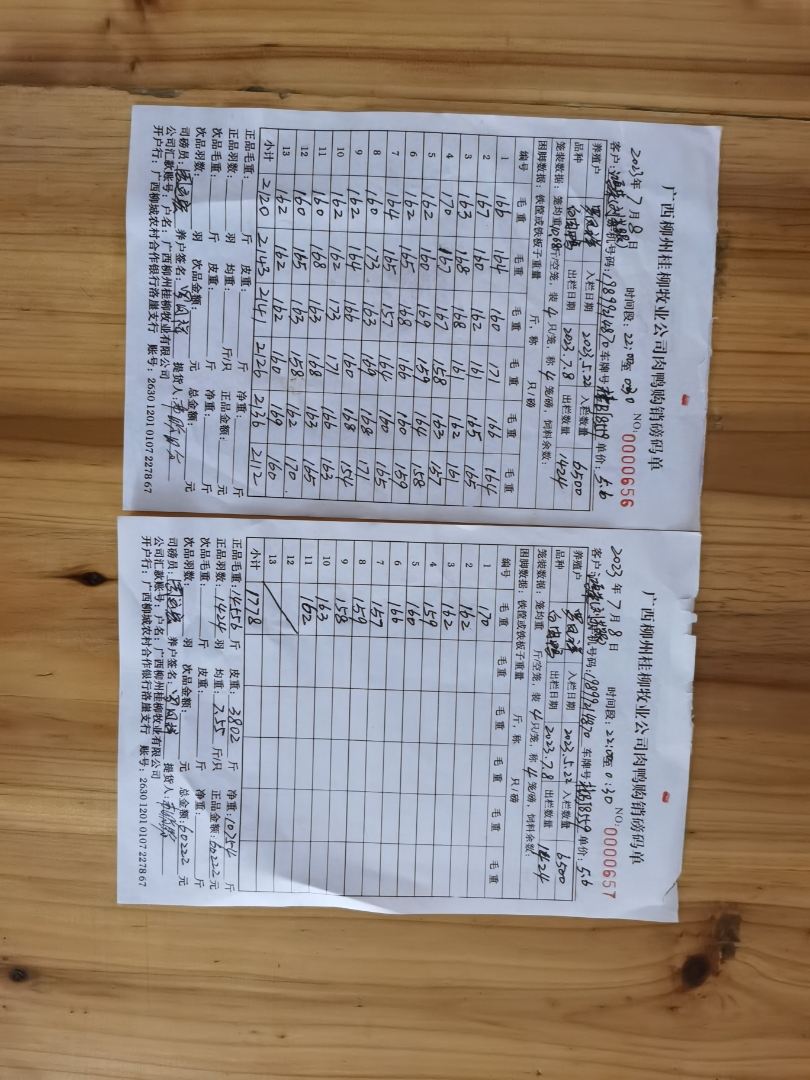 广西柳州桂柳牧业公司肉鸭购销磅码单
2023年7月8日 时间段:22:00至0:30 NO:0000656
客户: 手机号码:18992164870 车牌号 单价:5.6
养殖户 入栏日期 2023.5.22 入栏数量 6500
品种 白肉鸭 出栏日期 2023.7.8 出栏数量 1424
笼装数据:笼均重10.68斤/空笼,装4只/笼,称4笼/磅,饲料余数:
困脚数据:铁筐或铁板子重量 斤,称 只/磅
编号 毛重 毛重 毛重 毛重 毛重 毛重
1 166 164 160 171 166 164
2 167 160 162 161 165 165
3 163 168 168 161 162 161
4 170 167 167 158 164 157
5 162 160 169 159 164 158
6 162 165 168 166 160 159
7 164 165 157 164 160 165
8 160 173 163 169 168 171
9 162 164 166 160 168 154
10 162 162 173 171 166 163
11 160 168 163 168 163 165
12 160 165 163 158 162 170
13 162 162 162 160 169 160
小计 2120 2143 2141 2126 2136 2112
正品毛重: 斤 皮重: 斤 净重: 斤
正品羽数: 羽 均重: 斤/只 正品金额: 元
次品毛重: 斤 皮重: 斤 净重: 斤
次品羽数: 羽 次品金额: 元 总金额: 元
司磅员: 养户签名: 提货人:
公司汇款账号:户名:广西柳州桂柳牧业有限公司
开户行:广西柳城农村合作银行洛崖支行 账号:2630 1201 0107 2278 67
广西柳州桂柳牧业公司肉鸭购销磅码单
2023年7月8日 时间段:22:00至0:30 NO:0000657
客户: 手机号码:18992164870 车牌号 单价:5.6
养殖户 入栏日期 2023.5.22 入栏数量 6500
品种 白肉鸭 出栏日期 2023.7.8 出栏数量 1424
笼装数据:笼均重 斤/空笼,装4只/笼,称4笼/磅,饲料余数:
困脚数据:铁筐或铁板子重量 斤,称 只/磅
编号 毛重 毛重 毛重 毛重 毛重 毛重
1 170
2 162
3 162
4 159
5 160
6 166
7 157
8 159
9 158
10 163
11 162
12
13
小计 1778
正品毛重:14556斤 皮重:3802斤 净重:10754斤
正品羽数:1424羽 均重:7.55斤/只 正品金额:60222元
次品毛重: 斤 皮重: 斤 净重: 斤
次品羽数: 羽 次品金额: 元 总金额:60222元
司磅员: 养户签名: 提货人:
公司汇款账号:户名:广西柳州桂柳牧业有限公司
开户行:广西柳城农村合作银行洛崖支行 账号:2630 1201 0107 2278 67